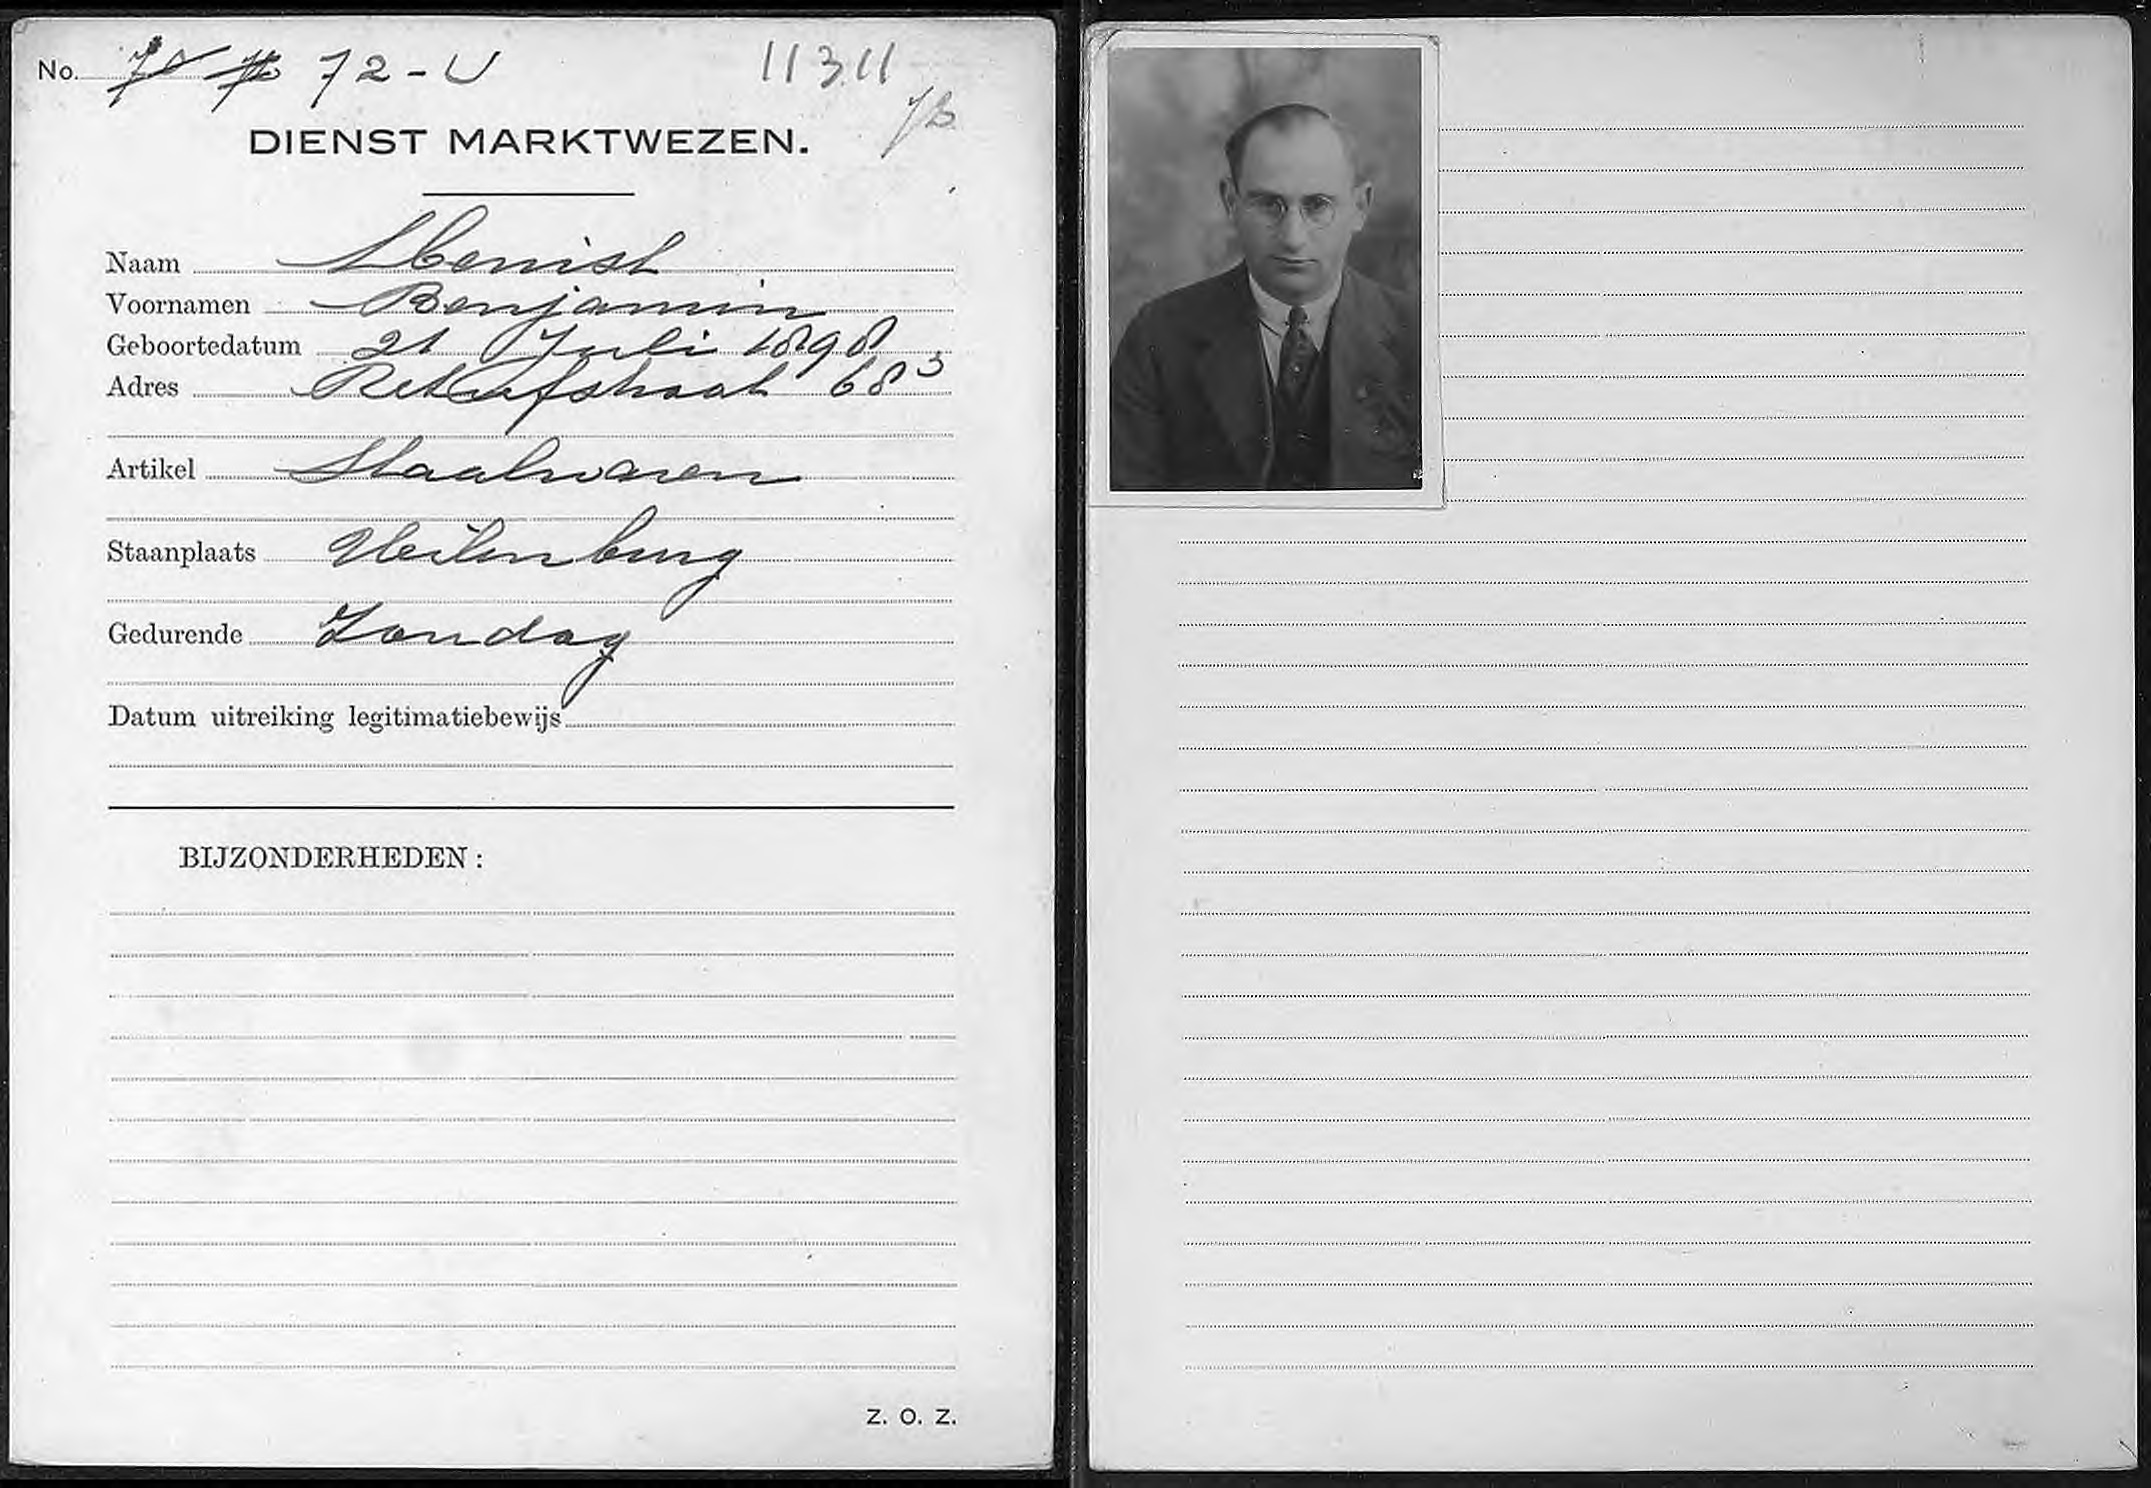 No. 70 72-U 11311
DIENST MARKTWEZEN.
Naam Monist
Voornamen Benjamin
Geboortedatum 21 Juli 1898
Adres Retiefstraat 68 3
Artikel Staalwaren
Staanplaats Uilenburg
Gedurende Zondag
Datum uitreiking legitimatiebewijs
BIJZONDERHEDEN:
Z. O. Z.